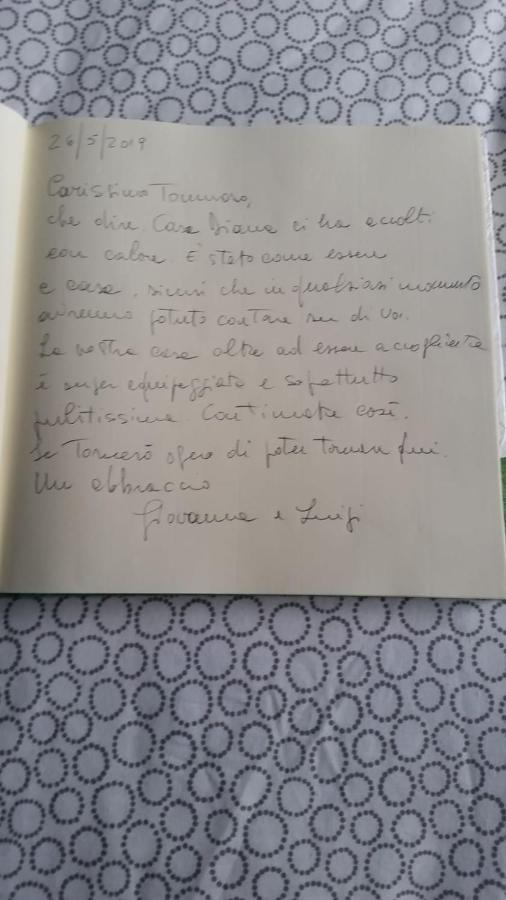 26/5/2019
Carissimo Tommaso,
che dire. Casa Diana ci ha accolti
con calore. E' stato come essere
a casa, sicuri che in qualsiasi momento
avremmo potuto contare su di voi.
La vostra casa oltre ad essere accogliente
è super equipaggiata e soprattutto
pulitissima. Continuate così.
Se tornerò spero di poter tornare qui.
Un abbraccio
Giovanna e Luigi